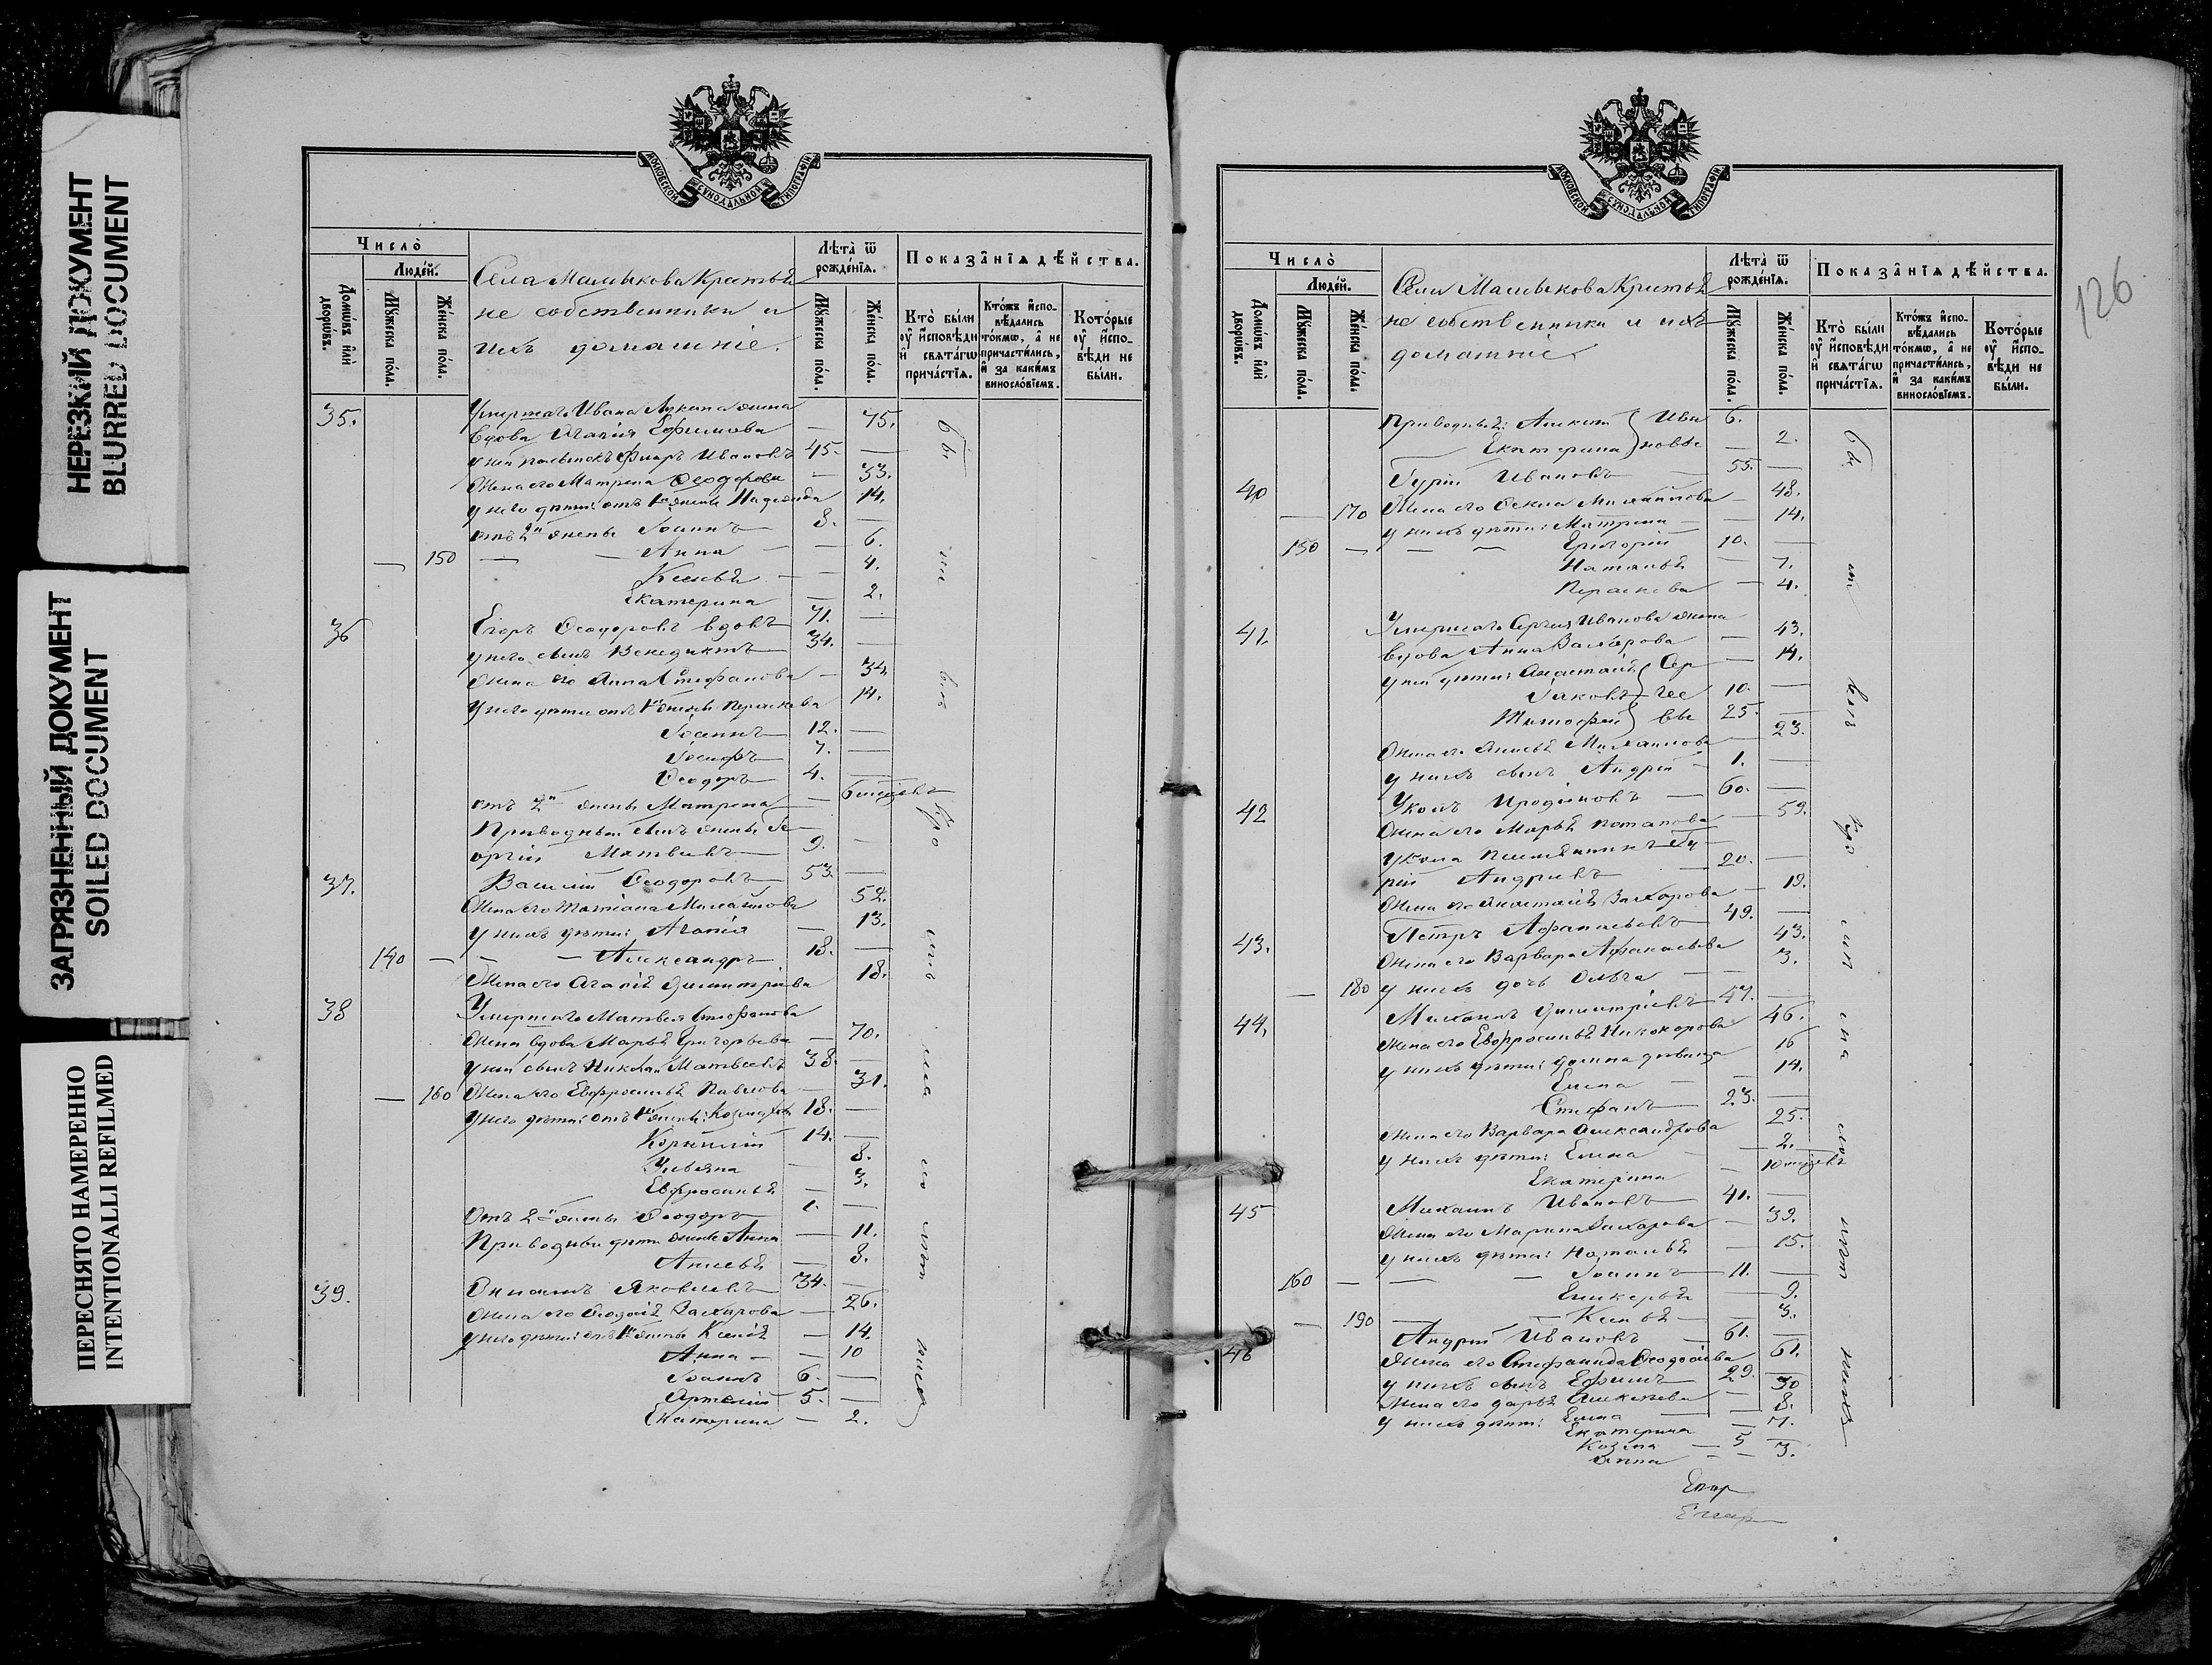 НЕРЕЗКИЙ ДОКУМЕНТ
BLURRED DOCUMENT
ЗАГРЯЗНЕННЫЙ ДОКУМЕНТ
SOILED DOCUMENT
ПЕРЕСНЯТО НАМЕРЕННО
INTENTIONALLI REFILMED
МОСКОВСКОЙ СѴНОДАЛЬНОЙ ТИПОГРАФІИ
Число̀
Людей.
Домѡвъ или дворѡвъ.
Мꙋжеска пола.
Женска пола.
Села Малыкова Крестьѣ
не собственники и
ихъ домашніе.
Лѣта ѿ рожденія.
Мꙋжеска пола.
Женска пола.
Показанія дѣйства.
Кто были оу исповѣди и свѧтагѡ причастія.
Ктожъ исповѣдались токмѡ, а не причастились, и за какимъ винословіемъ.
Которые оу исповѣди не были.
35. Умершаго Ивана Лукина жена
вдова Агапія Ефимова — 75.
у ней Иванов 45. —
Жена его Матрена Ѳеодорова — 33.
у него дѣти: отъ 1й жены Надежда 14.
отъ 2й жены Іоаннъ 8. —
— 150 — Анна — 6.
— 4.
Екатерина — 2.
36 Егоръ Ѳеодоровъ вдовъ 71. —
у него сынъ Венедиктъ 34. —
Жена его Анна Стефанова — 34.
у него дѣти отъ 1й жены Параскева 14.
Іоаннъ 12. —
Іосифъ 7. —
Ѳеодоръ 4. —
отъ 2й жены Матрена — 6 месяцевъ
Приводный сынъ жены Ге-
оргій Матвѣевъ 9. —
37. Василій Ѳеодоровъ 53 —
Жена его Татіана Михайлова 52.
у нихъ дѣти: Агапія — 13.
140 — Александръ 18. —
Жена его Агапіѣ Димитріева 18.
38 Умершаго Матвея Стефанова
Жена вдова Марьѣ Григорьева — 70.
у ней сынъ Николай Матвеевъ 38. —
— 160 Жена его Евфросиньѣ Павлова — 31.
у него дѣти: отъ 1й жены: Козма 18. —
Корнилій 14. —
Ульяна — 8.
Евфросиньѣ — 3.
Отъ 2й жены Ѳеодоръ 1. —
Приводныи дѣти жены Анна — 11.
Анисьѣ — 8.
39. Онисимъ Яковлевъ 34. —
Жена его Захарова — 26.
у него дѣти: отъ 1й жены Ксеніѣ — 14.
Анна — — 10
Іоаннъ 6. —
Артемій 5. —
Екатерина — 2.
126
МОСКОВСКОЙ СѴНОДАЛЬНОЙ ТИПОГРАФІИ
Число̀
Людей.
Домѡвъ или дворѡвъ.
Мꙋжеска пола.
Женска пола.
Села Малыкова Крестьѣ
не собственники и ихъ
домашніе
Лѣта ѿ рожденія.
Мꙋжеска пола.
Женска пола.
Показанія дѣйства.
Кто были оу исповѣди и свѧтагѡ причастія.
Ктожъ исповѣдались токмѡ, а не причастились, и за какимъ винословіемъ.
Которые оу исповѣди не были.
Ива 6.
Екатерина } новы — 2.
40 Гурій Ивановъ 55. —
— 170 Жена его Михайлова — 48.
у нихъ дѣти: Матрена — — 14.
150 — — Григорій 10. —
Натальѣ — 7.
Параскева — 4.
41. Умершаго Сергія Иванова жена
вдова Анна Захарова — 43.
у ней дѣти: Анастасіѣ } Сер — 14.
Іаковъ } гее 10. —
Тимофей } вы 25. —
Жена его Анисьѣ Михайлова 23.
у нихъ сынъ Андрей 1. —
42 60. —
Жена его Марьѣ Потапова — 59.
рій Андреевъ 20. —
Жена его Анастасіѣ Захарова — 19.
43. Петръ Афанасьевъ 49. —
Жена его Варвара Афанасьева 43.
— 180 у нихъ дочь Ольга — 3.
44, Михаилъ Димитріевъ 47. —
Жена его Евфросиньѣ Никонорова 46.
у нихъ дѣти: Домна девица 16
Елена — 14.
Стефанъ 23. —
Жена его Варвара Александрова 25.
у нихъ дѣти: Елена — 2.
Екатерина — 10 месяцевъ
45 Михаилъ Ивановъ 41. —
Жена его Марина Захарова — 39.
у нихъ дѣти: Натальѣ — 15.
160 — — Іоаннъ 11. —
Гликерьѣ — 9.
— 190 — — 3.
46 Андрей Ивановъ 61. —
Жена его Стефанида Ѳеодосіева 61.
у нихъ сынъ Ефимъ 29. —
Жена его Дарьѣ Алексеева — 30
у нихъ дѣти: Елена — 8.
Екатерина — 7.
Козма — 5 —
Анна — — 3.